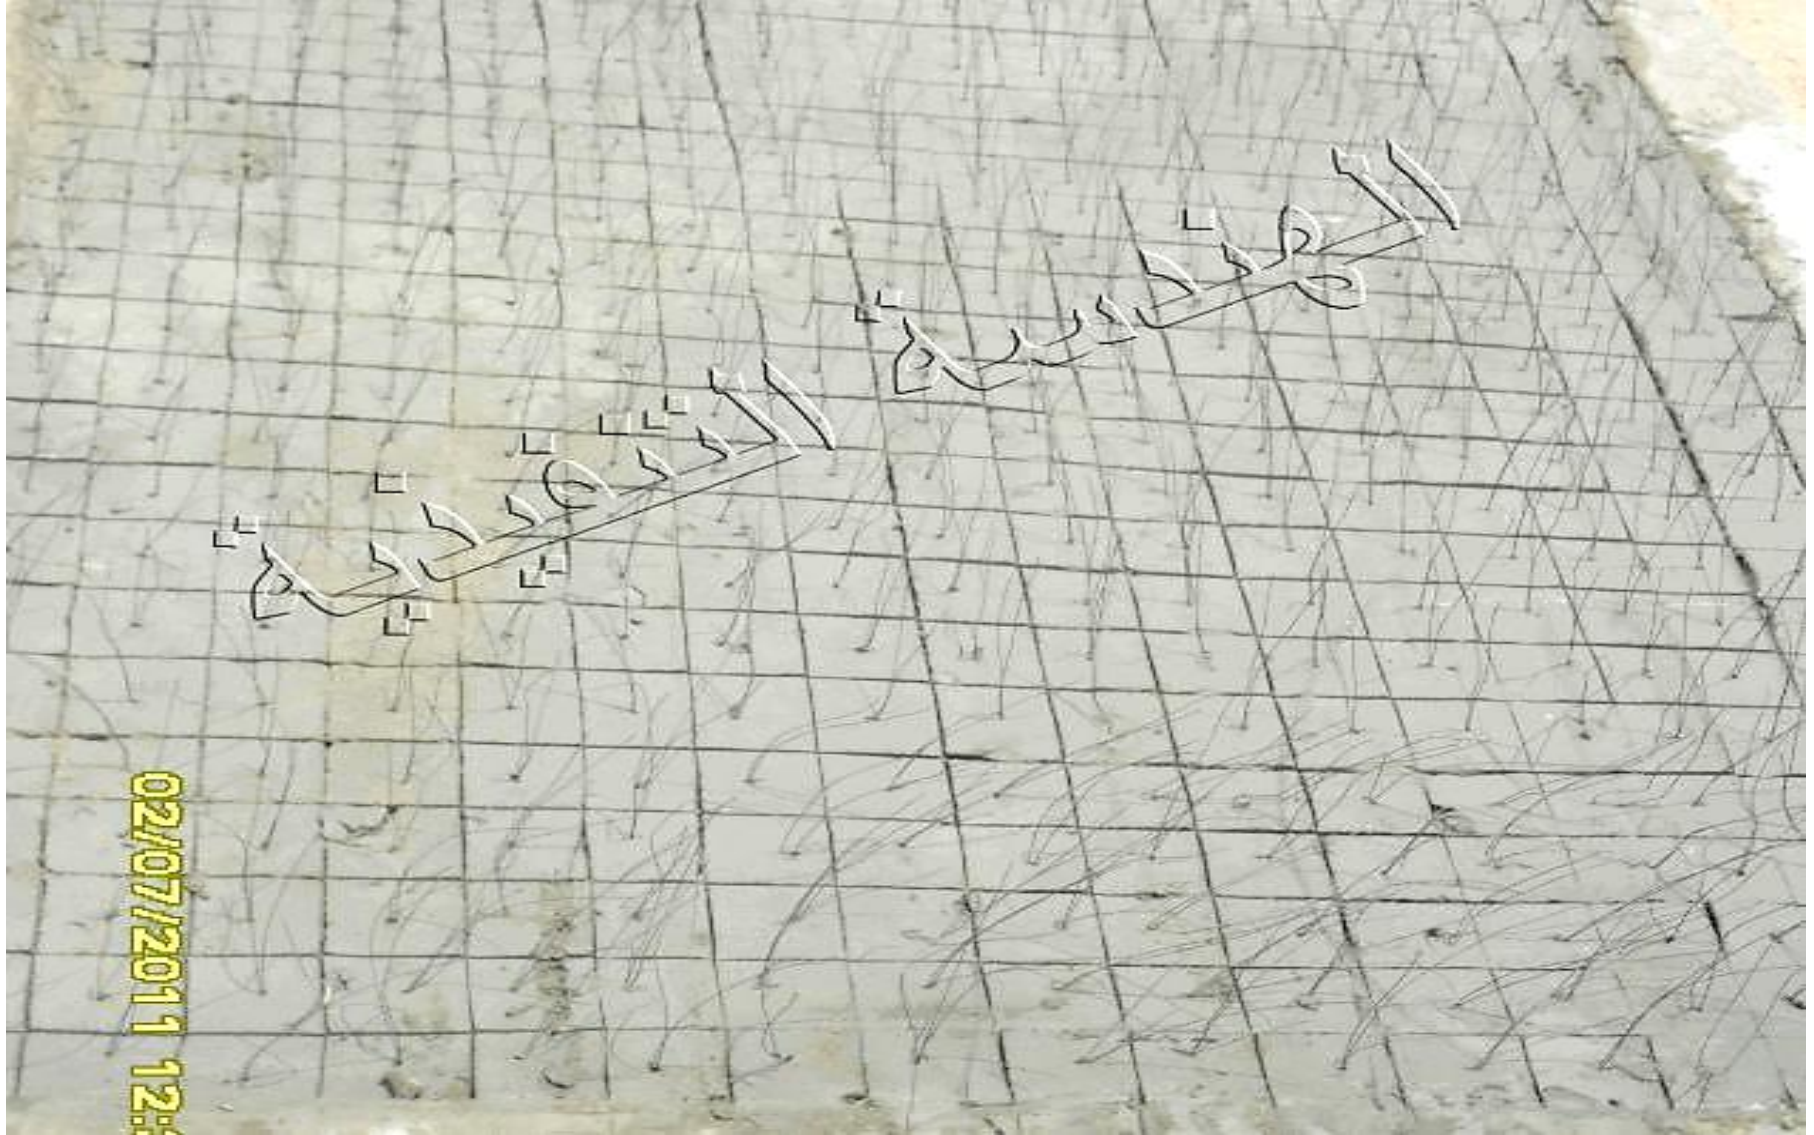 الهندسة التنفيذية
02/07/2011 12: